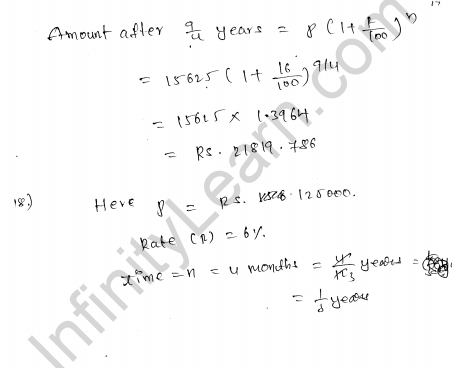 Amount after 9/4 years = P (1+ R/100)^n
= 15625 (1+ 16/100)^9/4
= 15625 × 1.3964
= RS. 21819.786
18.) Here P = Rs. 125000.
Rate (R) = 6%.
time = n = 4 months = 4/12 3 years =
= 1/3 years
InfinityLearn.com